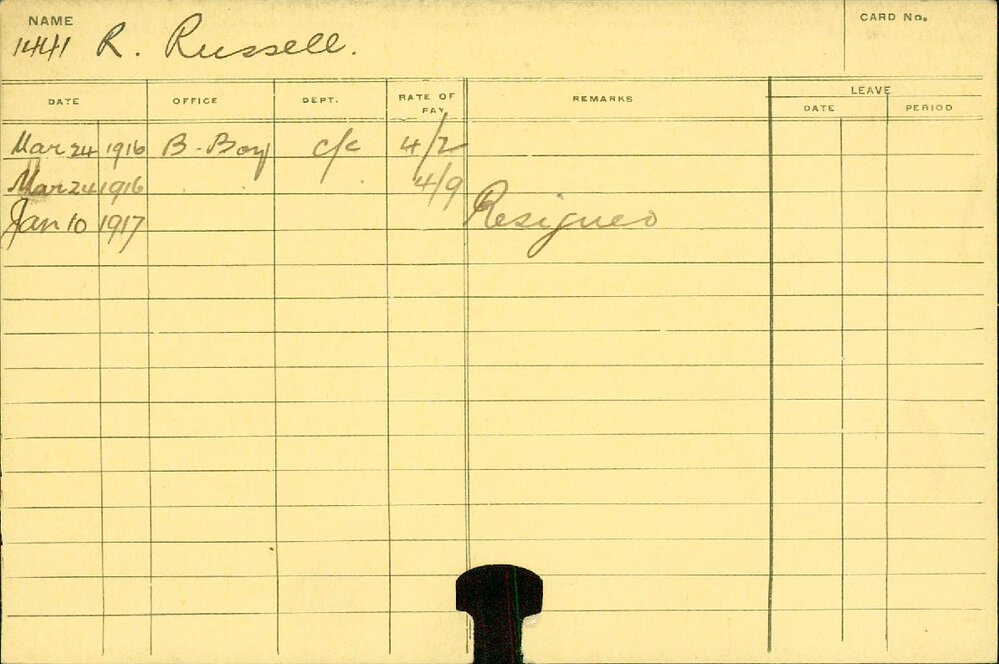 NAME
CARD No.
1441 R. Russell.
DATE OFFICE DEPT. RATE OF PAY REMARKS LEAVE
DATE PERIOD
Mar 24 1916 B. Boy c/c 4/2
Mar 24 1916 . . 4/9
Jan 10 1917 Resigned